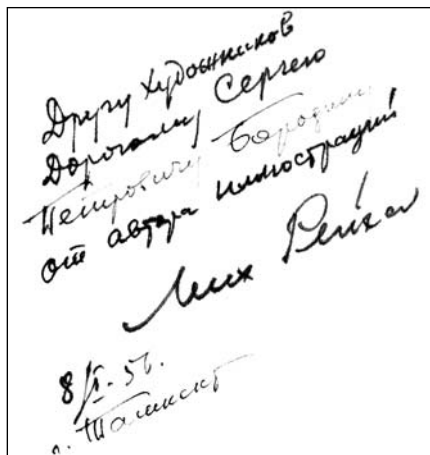 Другу художников
Дорогому Сергею
Петровичу Бородину
от автора иллюстраций
Мих Рейх
8/I-56.
г. Ташкент